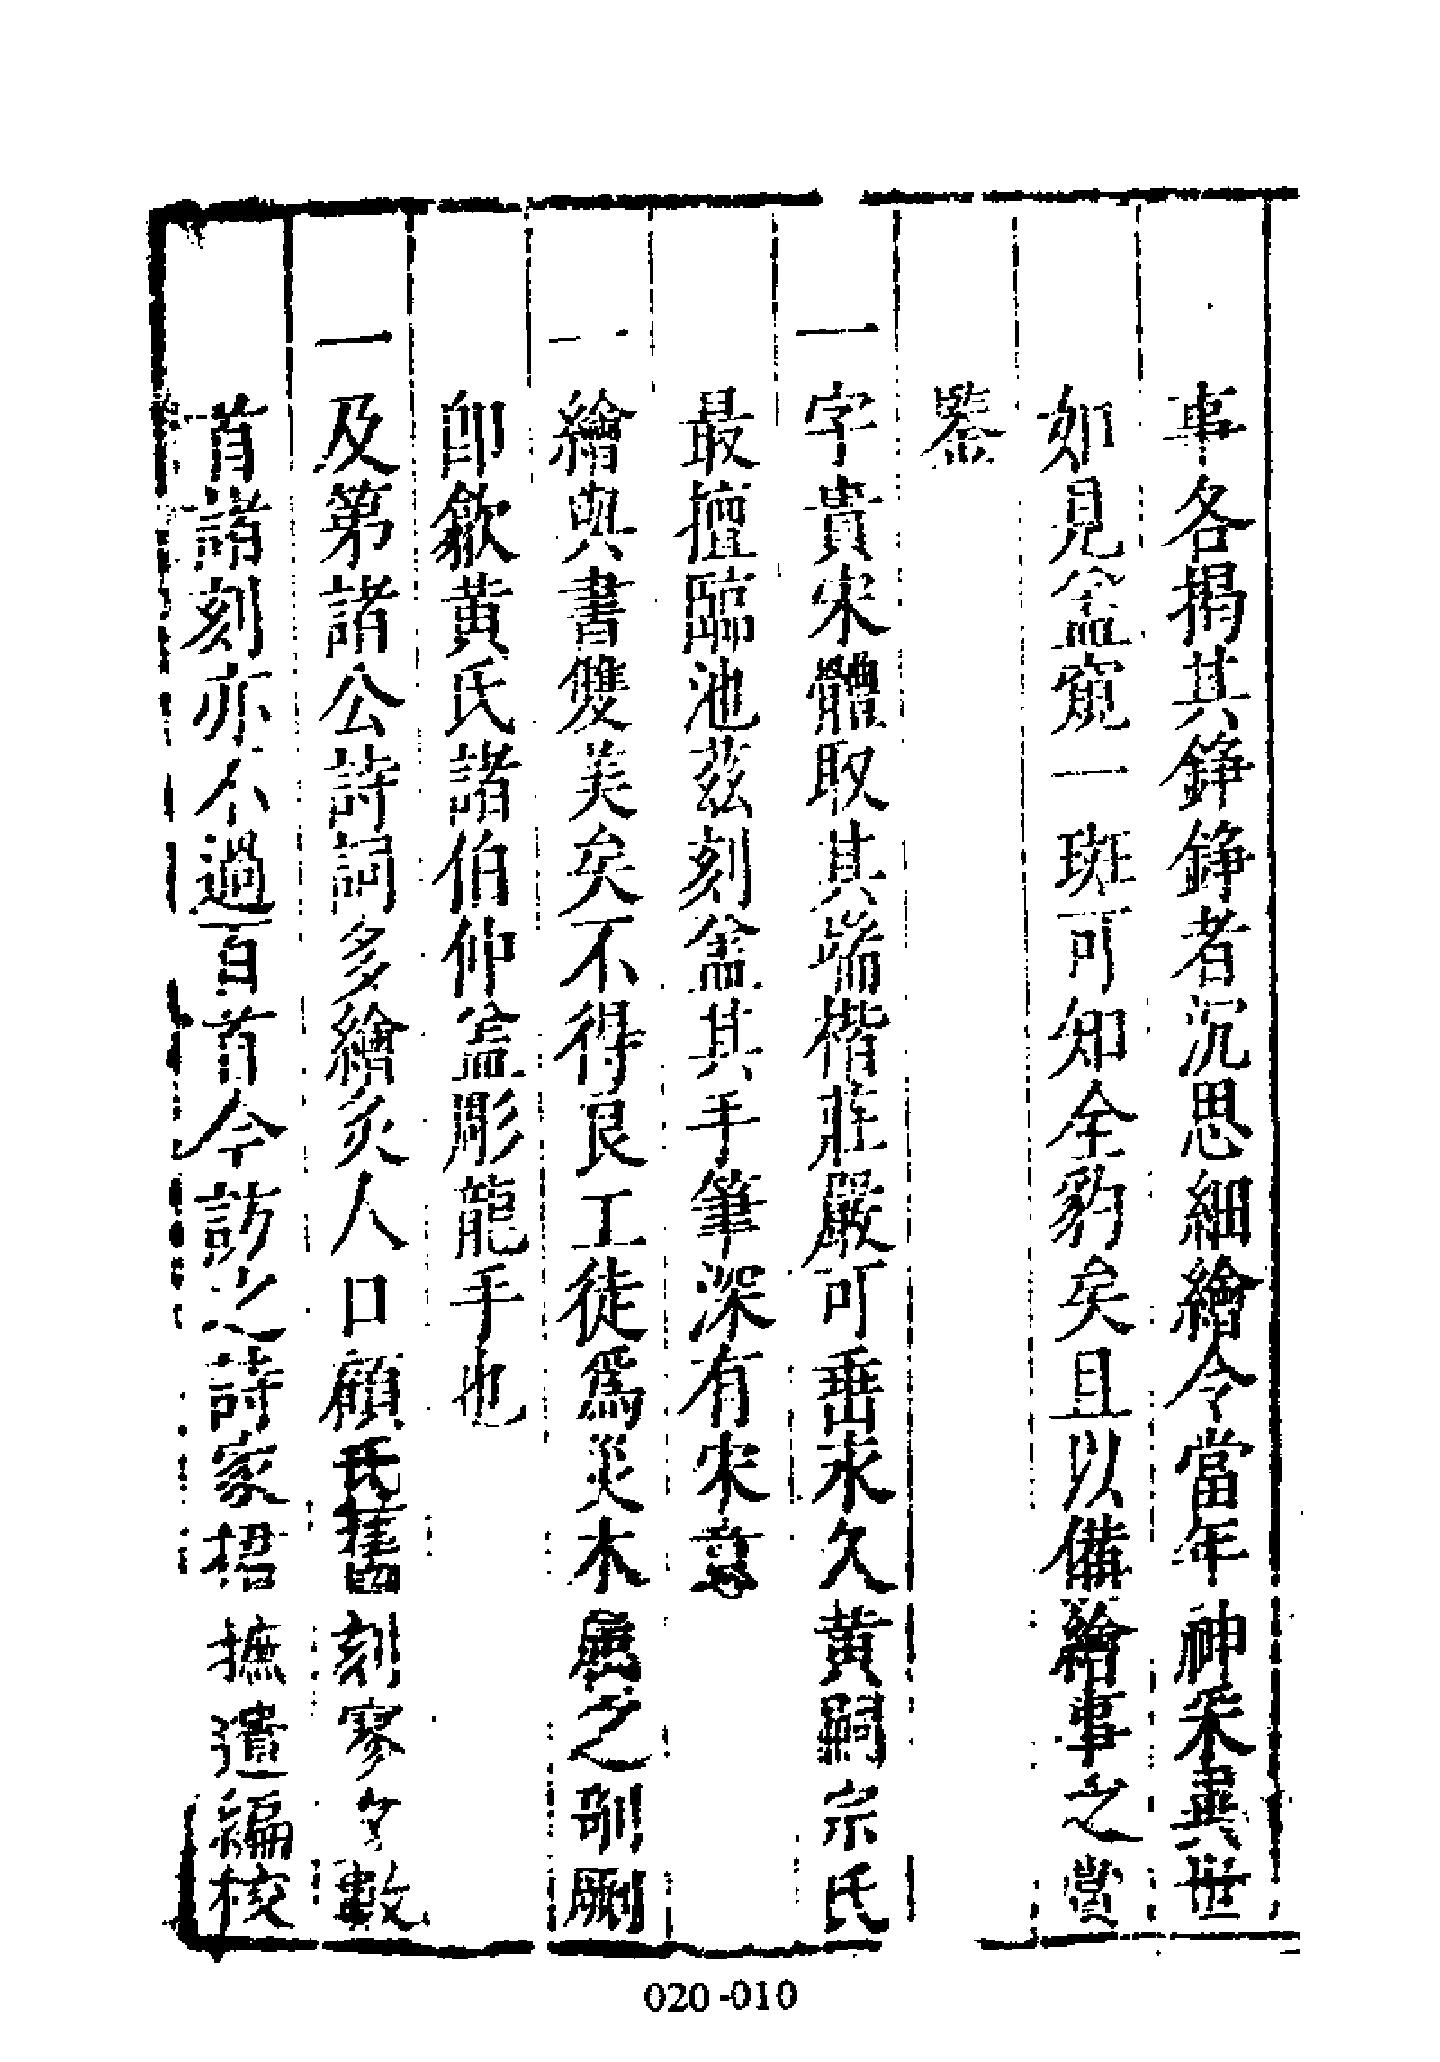 事各揭其錚錚者沉思細繪令當年神采異世
如見盆窺一斑可知全豹矣且以備繪事之賞
鑒
一字貴宋體取其端楷莊嚴可垂永久黃嗣宗氏
最擅臨池茲刻盆其手筆深有宋意
一繪與書雙美矣不得良工徒爲災木屬之剞劂
卽歙黃氏諸伯仲盆彫龍手也
一及第諸公詩詞多繪炙人口顧氏舊刻寥寥數
首諸刻亦不過百首今訪之詩家捃摭遺編校
020-010